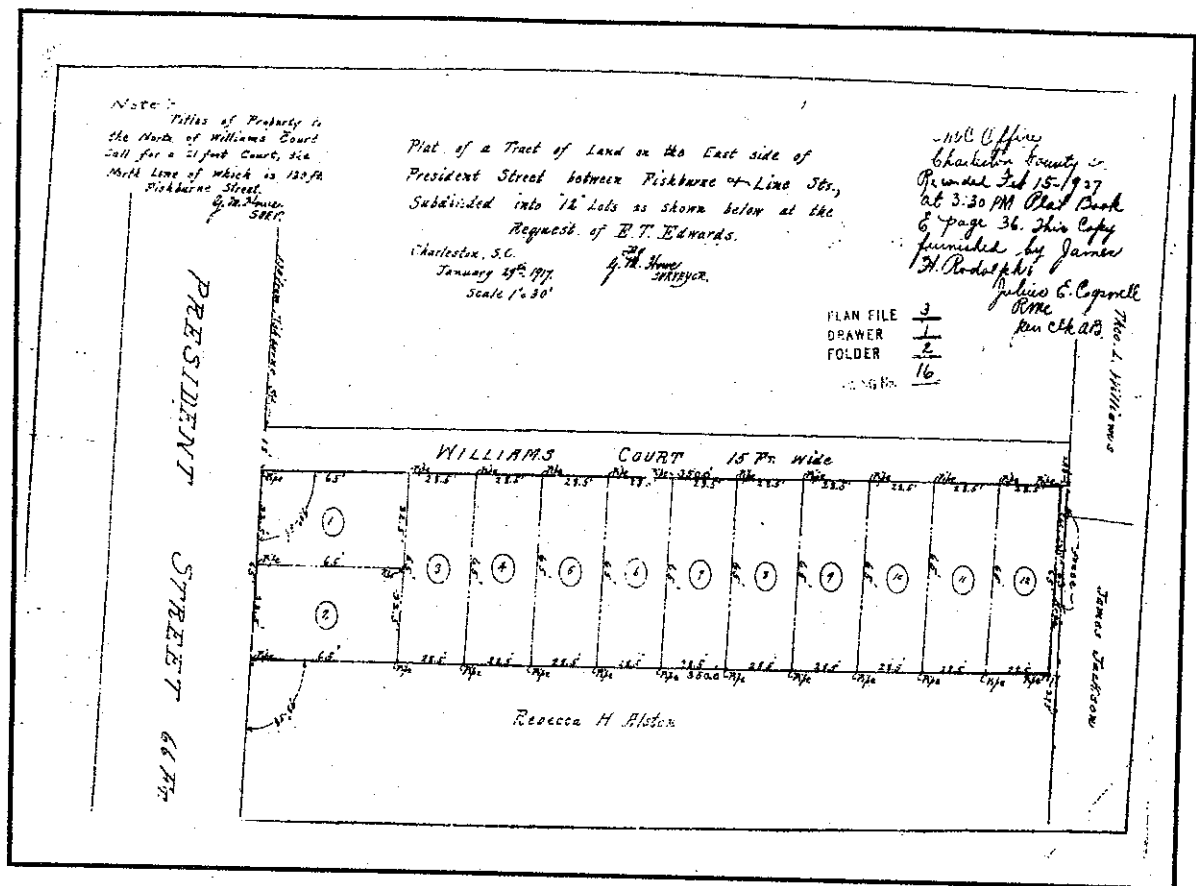 Note:-
Titles of Property to
the North of Williams Court
call for a 21 foot Court, the
North Line of which is 120 ft
Fishburne Street.
G. M. Howe
SURV.
Plat of a Tract of Land on the East side of
President Street between Fishburne & Line Sts.,
Subdivided into "12" Lots as shown below at the
Request of E.T. Edwards.
Charleston, S.C.
January 29th 1917.
Scale 1"=30'
By
G. M. Howe
SURVEYOR.
RMC Office
Charleston County
Recorded Feb 15-1927
at 3:30 PM Plat Book
E page 36. This Copy
furnished by James
H. Rodolph
Julius E. Cogswell
RMC
per clk AB
PLAN FILE 3
DRAWER 1
FOLDER 2
16
Theo. L. Williams
PRESIDENT STREET 66 FT.
15'
WILLIAMS COURT 15 Ft. Wide
Pipe 65' Pipe 28.5' Pipe 28.5' Pipe 28.5' Pipe 28.5' Pipe 350.0' 28.5' Pipe 28.5' Pipe 28.5' Pipe 28.5' Pipe 28.5' Pipe 28.5' Pipe
1
32.5'
32.5'
Pipe 65' Pipe
65'
3 65' 4 65' 5 65' 6 65' 7 65' 8 65' 9 65' 10 65' 11 65' 12
2
32.5'
32.5'
Pipe 65' Pipe 28.5' Pipe 28.5' Pipe 28.5' Pipe 28.5' Pipe 28.5' 350.0' Pipe 28.5' Pipe 28.5' Pipe 28.5' Pipe 28.5' Pipe 28.5' Pipe
James Jackson
Rebecca H Alston